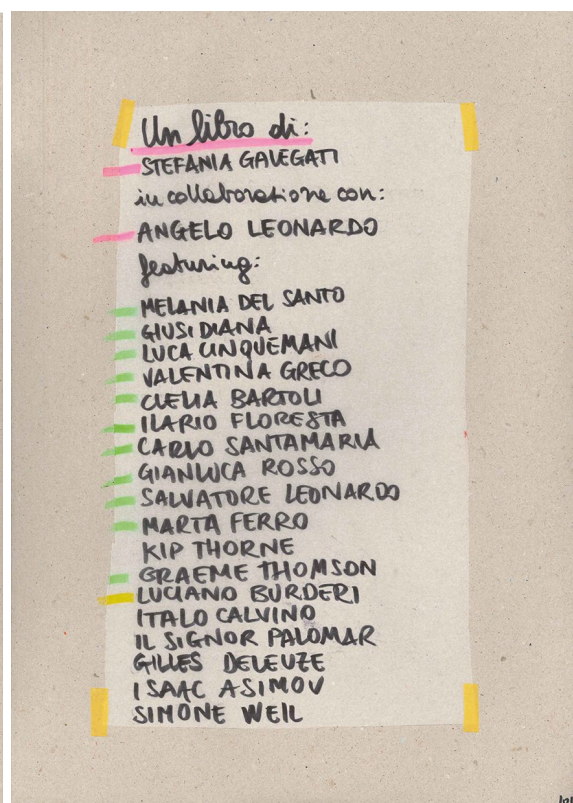 Un libro di:
STEFANIA GALEGATI
in collaborazione con:
ANGELO LEONARDO
featuring:
MELANIA DEL SANTO
GIUSI DIANA
LUCA CINQUEMANI
VALENTINA GRECO
CLELIA BARTOLI
ILARIO FLORESTA
CARLO SANTAMARIA
GIANLUCA ROSSO
SALVATORE LEONARDO
MARTA FERRO
KIP THORNE
GRAEME THOMSON
LUCIANO BURDERI
ITALO CALVINO
IL SIGNOR PALOMAR
GILLES DELEUZE
ISAAC ASIMOV
SIMONE WEIL